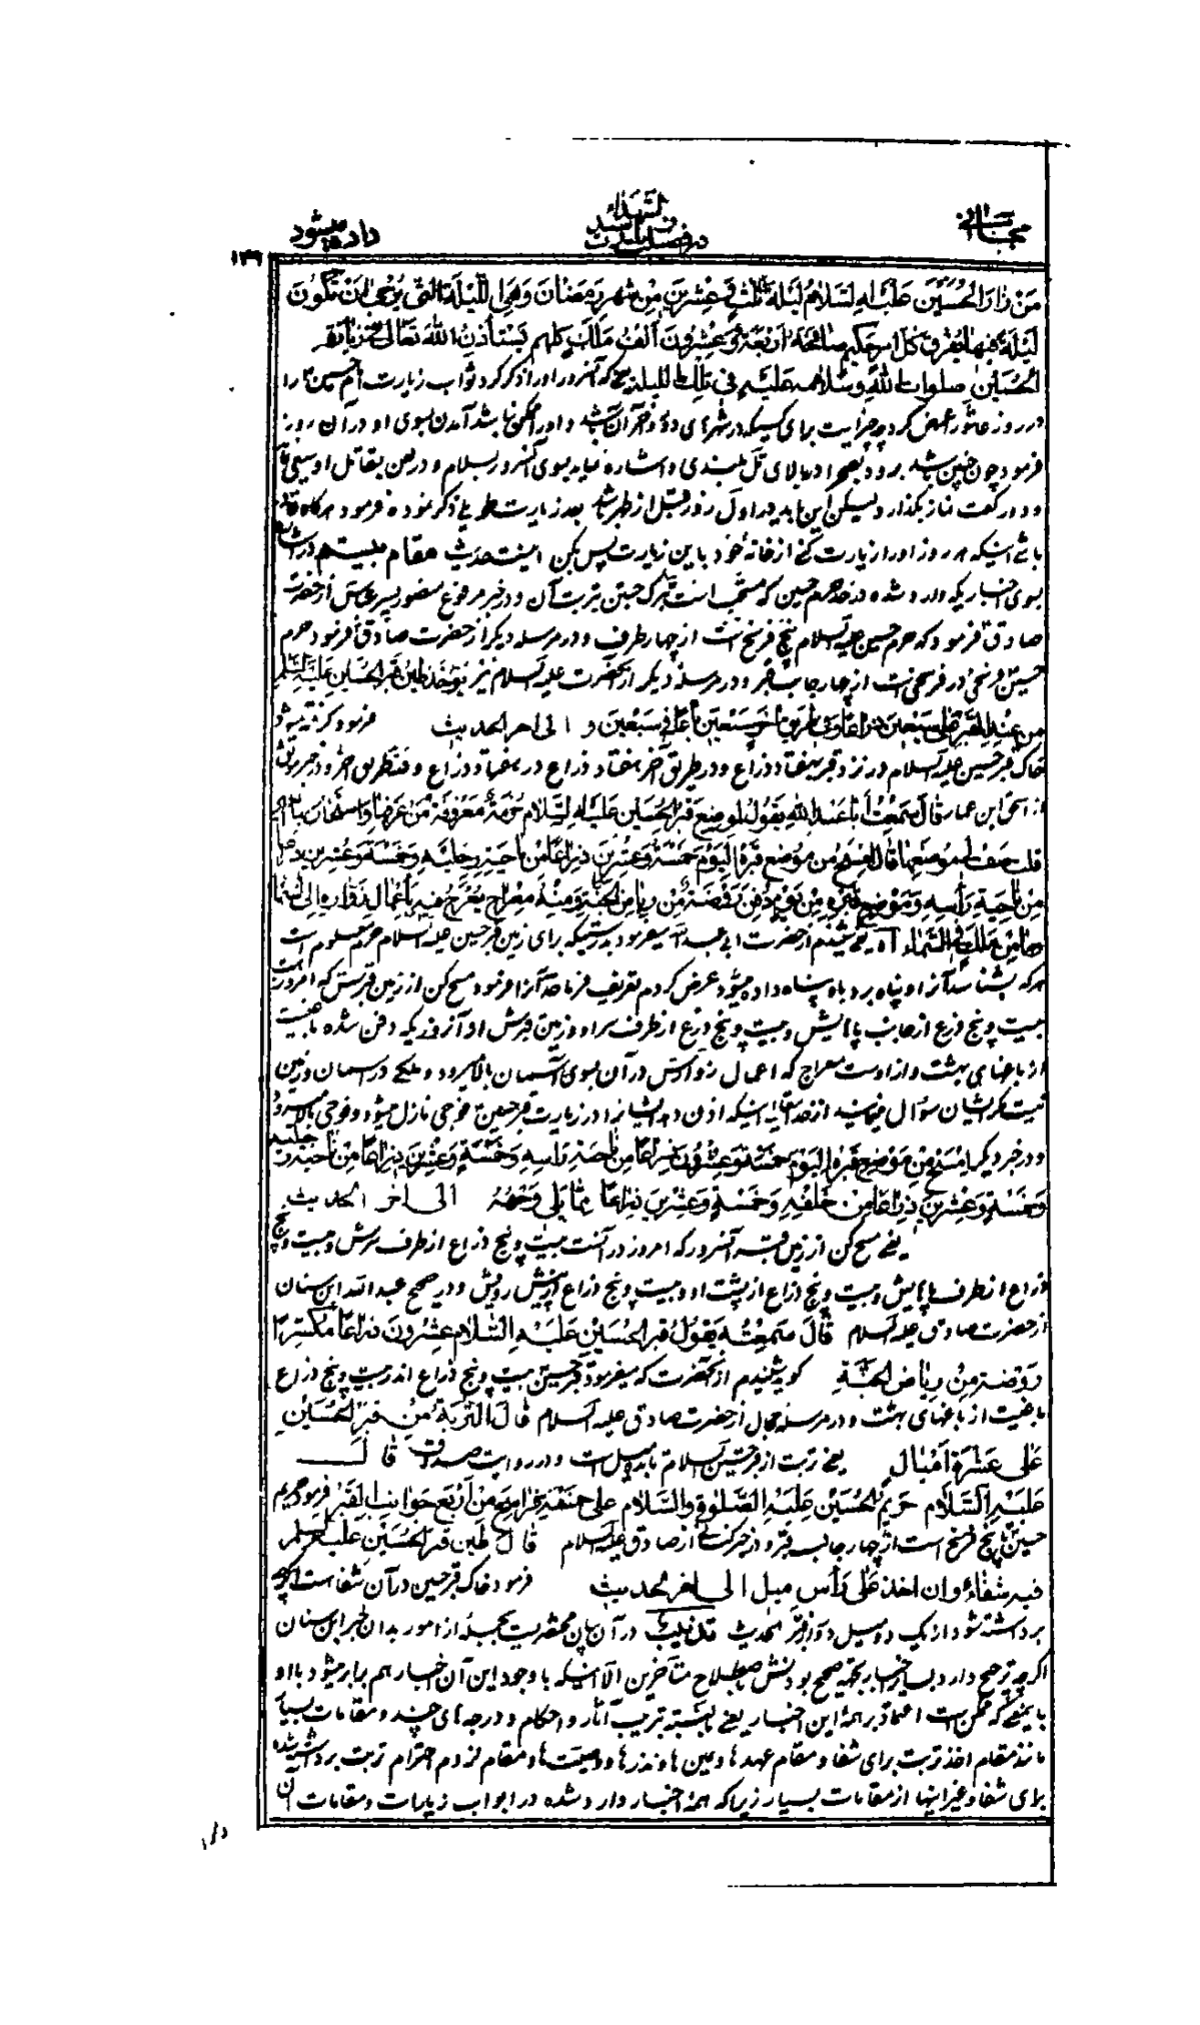 مجلس ثانی
الشهداء
در فضیلت
داده میشود
۱۳۹
مَنْ زَارَ الْحُسَيْنَ عَلَيْهِ السَّلَامُ لَيْلَةَ ثَلٰثٍ وَ عِشْرِينَ مِنْ شَهْرِ رَمَضَانَ وَهِيَ اللَّيْلَةُ الَّتِي يُرْجٰى اَنْ تَكُونَ
لَيْلَةَ فِيهَا يُفْرَقُ كُلُّ اَمْرٍ حَكِيمٍ صَافَحَهُ اَرْبَعَةٌ وَ عِشْرُونَ اَلْفَ مَلَكٍ كلهم يَسْتَأْذِنُ اللهَ تَعَالىٰ
الحُسَيْنِ صلوات اللهِ وَسَلامه عَلَيْهِ فِي تِلْكَ اللَّيْلَةِ که آنسرور او را ذکر کرد ثواب زیارت امام حسین را
در روز عاشورا عرض کرد چه چیز است برای کسیکه در شهرهای دور و جز آن باشد و او را ممکن نباشد آمدن بسوی او در آن روز
فرمود چون چنین باشد برود بصحرا و یا بالای تل بلندی و اشاره نماید بسوی آنسرور بسلام و در لعن بقاتل او سعی
و دو رکعت نماز بگذارد و لیکن این باید در اول روز قبل از ظهر باشد بعد زیارت طویلی ذکر نموده فرمود هرگاه قادر
باشی اینکه هر روز او را زیارت کنی از خانه خود باین زیارت پس بکن اینست حدیث مقام بیستم در اشاره
بسوی اخباریکه وارد شده در حد حرم حسین که مستحب است تبرک جستن بتربت آن و در خبر مرفوع منصور بن عباس از حضرت
صادق فرمود که حرم حسین علیه السلام پنج فرسخ است از چهار طرف و در مرسله دیگر از حضرت صادق فرمود حرم
حسین فرسخی در فرسخی است از چهار جانب قبر و در مرسله دیگر از آنحضرت علیه السلام نیز يُؤْخَذُ طِينُ قَبْرِ الْحُسَيْنِ عَلَيْهِ السَّلَامُ
مِنْ عِنْدِ الْقَبْرِ عَلٰى سَبْعِينَ ذِرَاعًا وَفِي طَرِيقٍ اٰخَرَ سَبْعِينَ بَاعًا فِي سَبْعِينَ و الى اخر الحديث فرمود گرفته میشود
خاک قبر حسین علیه السلام در نزد قبر هفتاد ذراع و در طریق آخر هفتاد ذراع در هفتاد ذراع و در خبر موثق
از اسحق ابن عمار قَالَ سَمِعْتُ اَبَا عَبْدِ اللهِ يَقُولُ لِمَوْضِعِ قَبْرِ الْحُسَيْنِ عَلَيْهِ السَّلَامُ حُرْمَةٌ مَعْرُوفَةٌ مَنْ عَرَفَهَا وَاسْتَجَارَ بِهَا اُجِيرَ
قلت صِف لي مَوْضِعَهَا قَالَ اِمْسَحْ مِنْ مَوْضِعِ قَبْرِهِ الْيَوْمَ خَمْسَةً وَ عِشْرِينَ ذِرَاعًا مِنْ نَاحِيَةِ رِجْلَيْهِ وَخَمْسَةً وَعِشْرِينَ ذِرَاعًا
مِنْ نَاحِيَةِ رَأْسِهِ وَمَوْضِعُ قَبْرِهِ مِنْ يَوْمِ دُفِنَ رَوْضَةٌ مِنْ رِيَاضِ الْجَنَّةِ وَمِنْهُ مِعْرَاجٌ يُعْرَجُ فِيهِ بِاَعْمَالِ زُوَّارِهِ اِلَى السَّمَاءِ
مَا مِنْ مَلَكٍ فِي السَّمَاءِ اه یعنی شنیدم از حضرت ابی عبدالله میفرمود بدرستیکه برای زمین قبر حسین علیه السلام حرم معلوم است
هر که بشناسد آنرا و پناه برد باو پناه داده میشود عرض کردم تعریف فرما حد آنرا فرمود مسح کن از زمین قبرش که امروز است
بیست و پنج ذرع از جانب پاهایش و بیست و پنج ذرع از طرف سر او و زمین قبرش او از روزیکه دفن شده باغیست
از باغهای بهشت و از اوست معراج که اعمال زوارش در آن بسوی آسمان بالا میرود و ملکی در آسمان و زمین
نیست مگر ایشان سؤال مینمایند از خدایتعالی اینکه اذن دهد ایشانرا در زیارت قبر حسین فوجی نازل میشود و فوجی بالا میرود
و در خبر دیگر اِمْسَحْ مِنْ مَوْضِعِ قَبْرِهِ الْيَوْمَ خَمْسَةً وَ عِشْرُونَ ذِرَاعًا مِنْ نَاحِيَةِ رَأْسِهِ وَ خَمْسَةً وَ عِشْرِينَ ذِرَاعًا مِنْ نَاحِيَةِ رِجْلَيْهِ
وَ خَمْسَةً وَ عِشْرِينَ ذِرَاعًا مِنْ خَلْفِهِ وَ خَمْسَةً وَ عِشْرِينَ ذِرَاعًا مِمَّا يَلِي وَجْهَهُ الى اخر الحديث
یعنی مسح کن از زمین قبر آنسرور که امروز در آنست بیست و پنج ذراع از طرف سرش و بیست و پنج
ذراع از طرف پاهایش و بیست و پنج ذراع از پشت او و بیست و پنج ذراع از پیش رویش و در صحیح عبدالله ابن سنان
از حضرت صادق علیه السلام قَالَ سَمِعْتُهُ يَقُولُ قَبْرُ الحُسَيْنِ عَلَيْهِ السَّلَامُ عِشْرُونَ ذِرَاعًا مُكَسَّرًا
رَوْضَةٌ مِنْ رِيَاضِ الْجَنَّةِ گوید شنیدم از آنحضرت که میفرمود قبر حسین بیست و پنج ذراع اندر بیست و پنج ذراع
باغیست از باغهای بهشت و در مرسله جمال از حضرت صادق علیه السلام قَالَ التُّرْبَةُ مِنْ قَبْرِ الْحُسَيْنِ
عَلٰى عَشَرَةِ اَمْيَالٍ یعنی تربت از قبر حسین علیه السلام تا ده میل است و در روایت صدوق قَالَ
عَلَيْهِ السَّلَام حَرِيمُ الْحُسَيْنِ عَلَيْهِ الصَّلٰوةُ وَالسَّلَام عَلىٰ خَمْسَةِ فَرَاسِخَ مِنْ اَرْبَعِ جَوَانِبِ الْقَبْرِ فرمود حریم
حسین پنج فرسخ است از چهار جانب قبر و در خبر از صادق علیه السلام قَالَ طِينُ قَبْرِ الْحُسَيْنِ عليه السلام
فيه شِفَاءٌ وان اخذ عَلٰى رَأْسِ مِيل الى اخر الحديث فرمود خاک قبر حسین در آن شفا است اگرچه
برداشته شود از یک دو میل دور از قبر الحدیث تذنیب در آن بیان مختصریست بجمله از امور بدان خبر ابن سنان
اگرچه ترجیح دارد بسایر اخبار بجهة صحیح بودنش باصطلاح متأخرین الا اینکه با وجود این آن اخبار هم برابر میشود با او
بایمعنی که ممکن است اعتماد بر همه این اخبار یعنی بالنسبه بترتیب آثار و احکام و درجه های چند و مقامات بسیار
مانند مقام اخذ تربت برای شفا و مقام عهدها و یمین ها و نذرها و وصیت ها و مقام لزوم احترام تربت برداشته شده
برای شفا و غیر اینها از مقامات بسیار زیرا که همه اخبار وارد شده در ابواب زیارات و مقامات آن